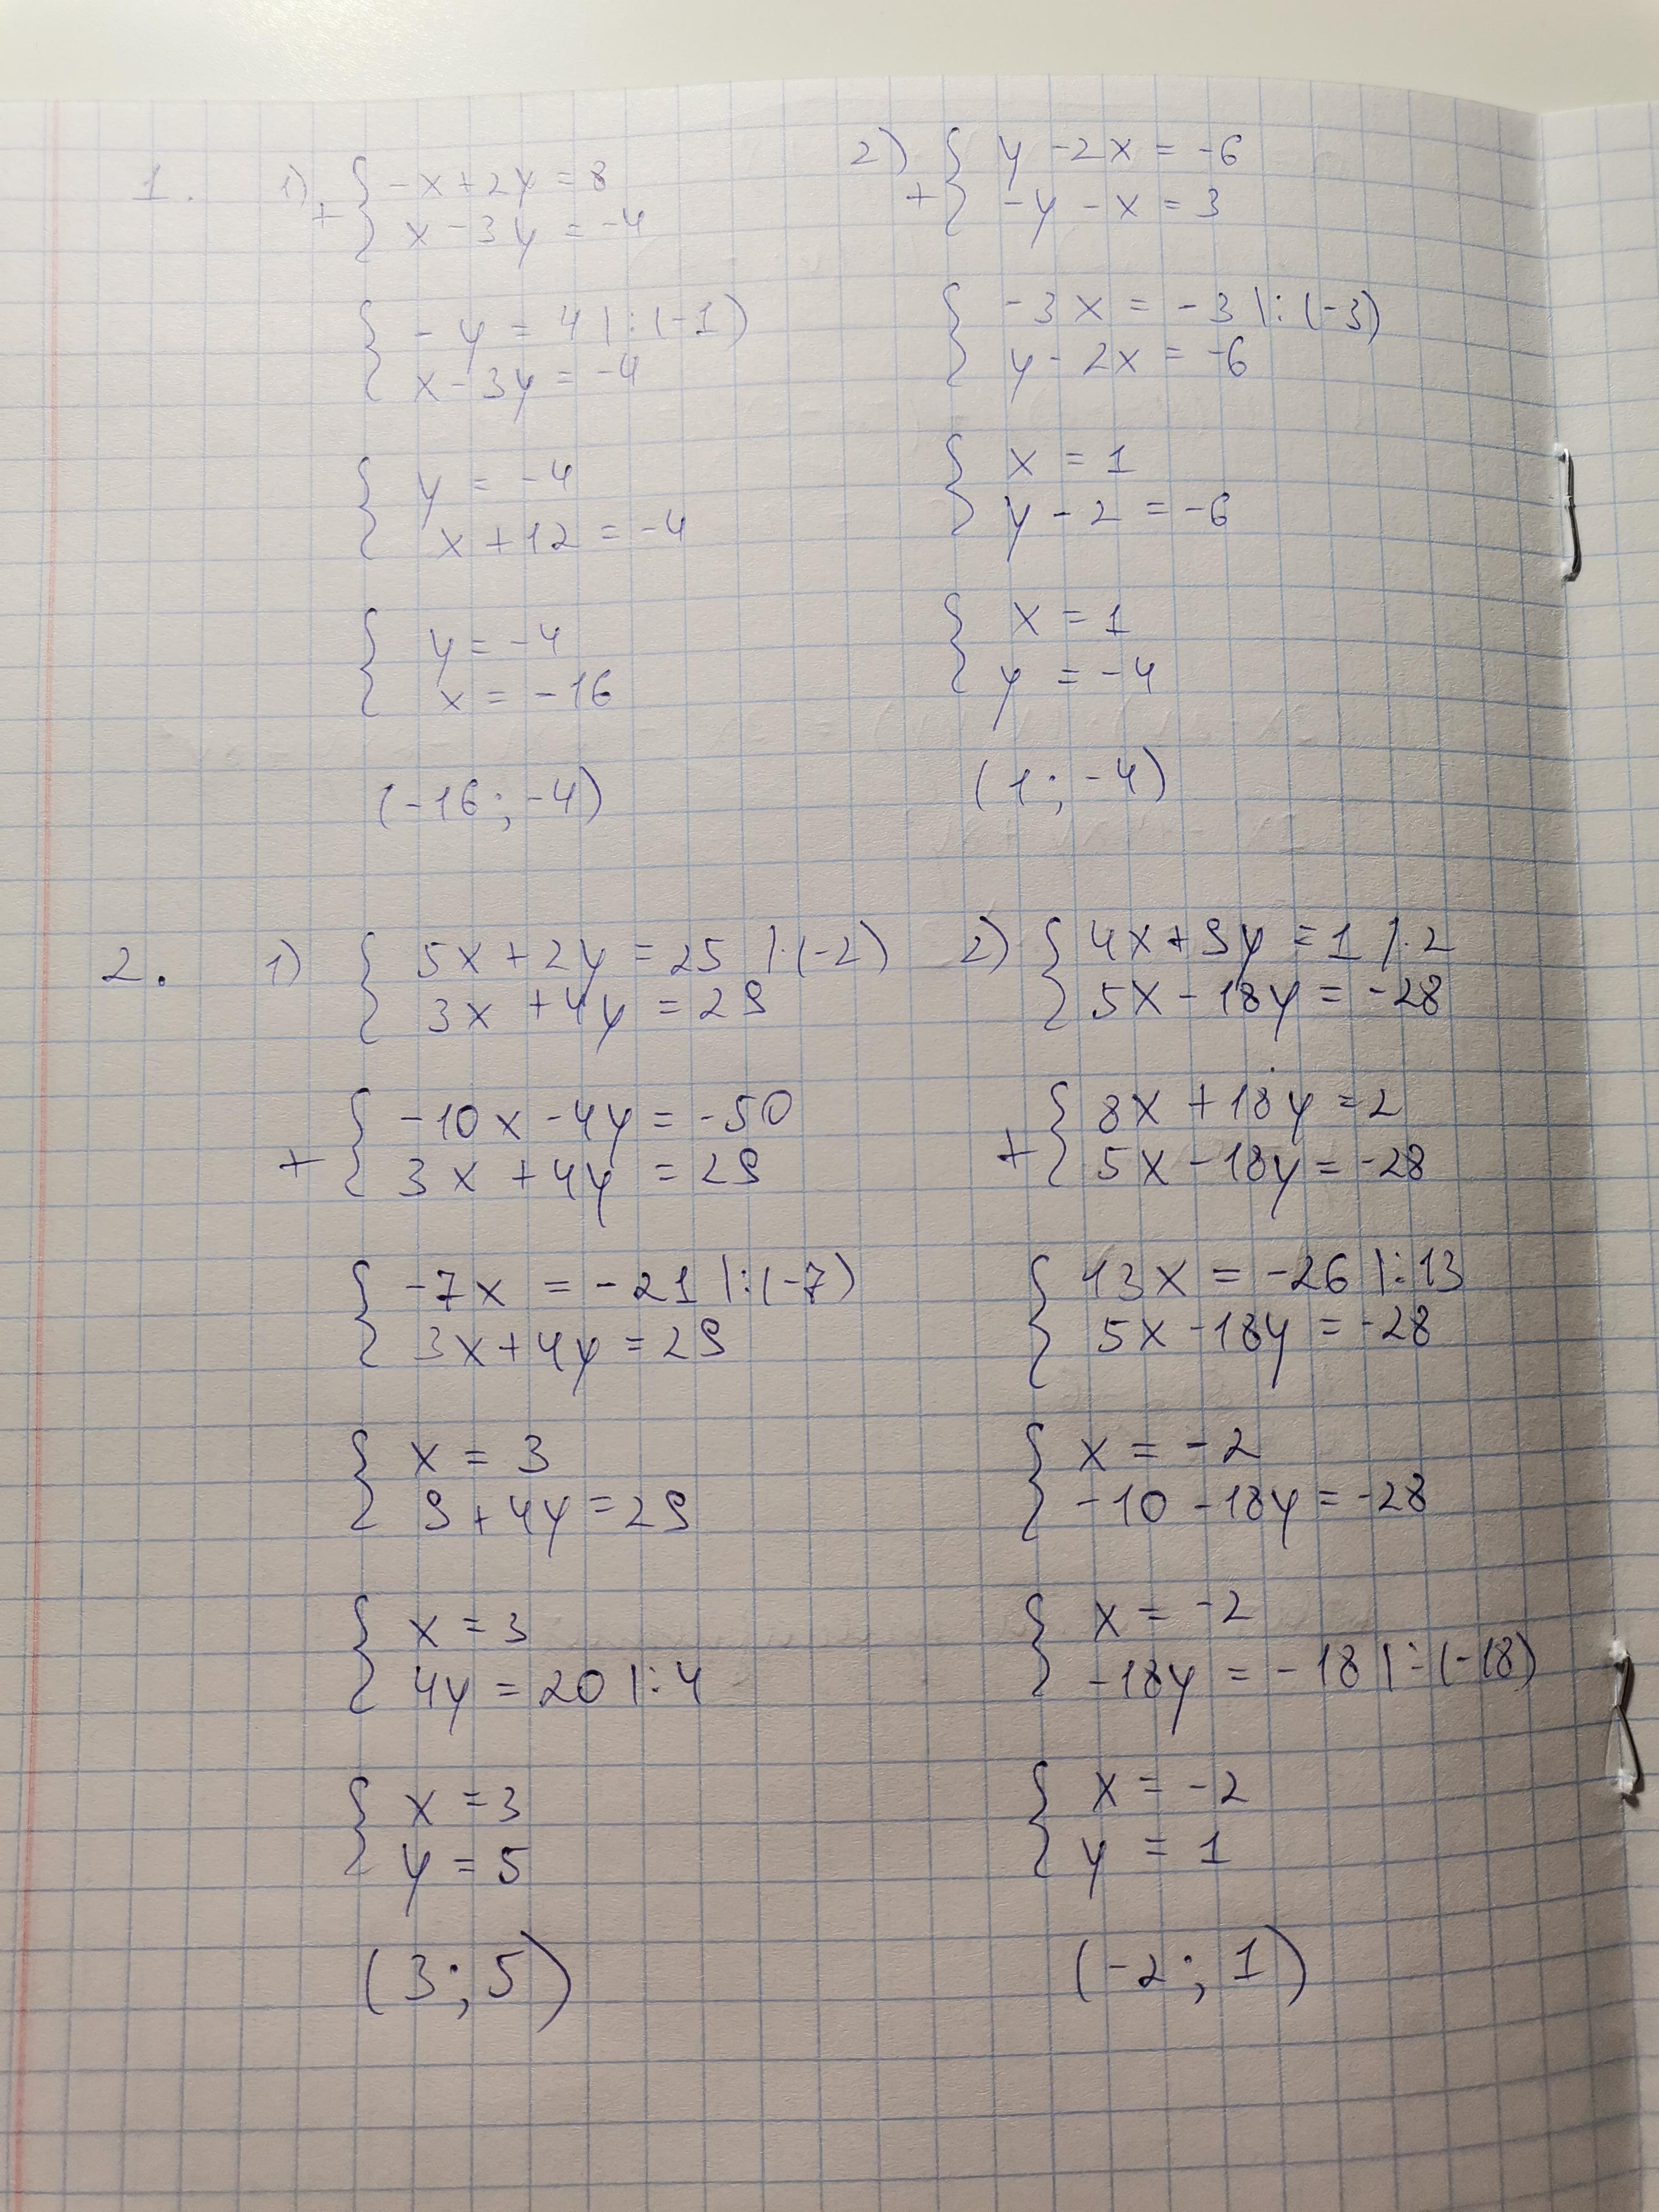 1. 1) + { -x + 2y = 8
x - 3y = -4
{ -y = 4 |:(-1)
x - 3y = -4
{ y = -4
x + 12 = -4
{ y = -4
x = -16
(-16; -4)
2) + { y - 2x = -6
-y - x = 3
{ -3x = -3 |:(-3)
y - 2x = -6
{ x = 1
y - 2 = -6
{ x = 1
y = -4
(1; -4)
2. 1) { 5x + 2y = 25 |·(-2)
3x + 4y = 29
+ { -10x - 4y = -50
3x + 4y = 29
{ -7x = -21 |:(-7)
3x + 4y = 29
{ x = 3
9 + 4y = 29
{ x = 3
4y = 20 |:4
{ x = 3
y = 5
(3; 5)
2) { 4x + 9y = 1 |·2
5x - 18y = -28
+ { 8x + 18y = 2
5x - 18y = -28
{ 13x = -26 |:13
5x - 18y = -28
{ x = -2
-10 - 18y = -28
{ x = -2
-18y = -18 |:(-18)
{ x = -2
y = 1
(-2; 1)